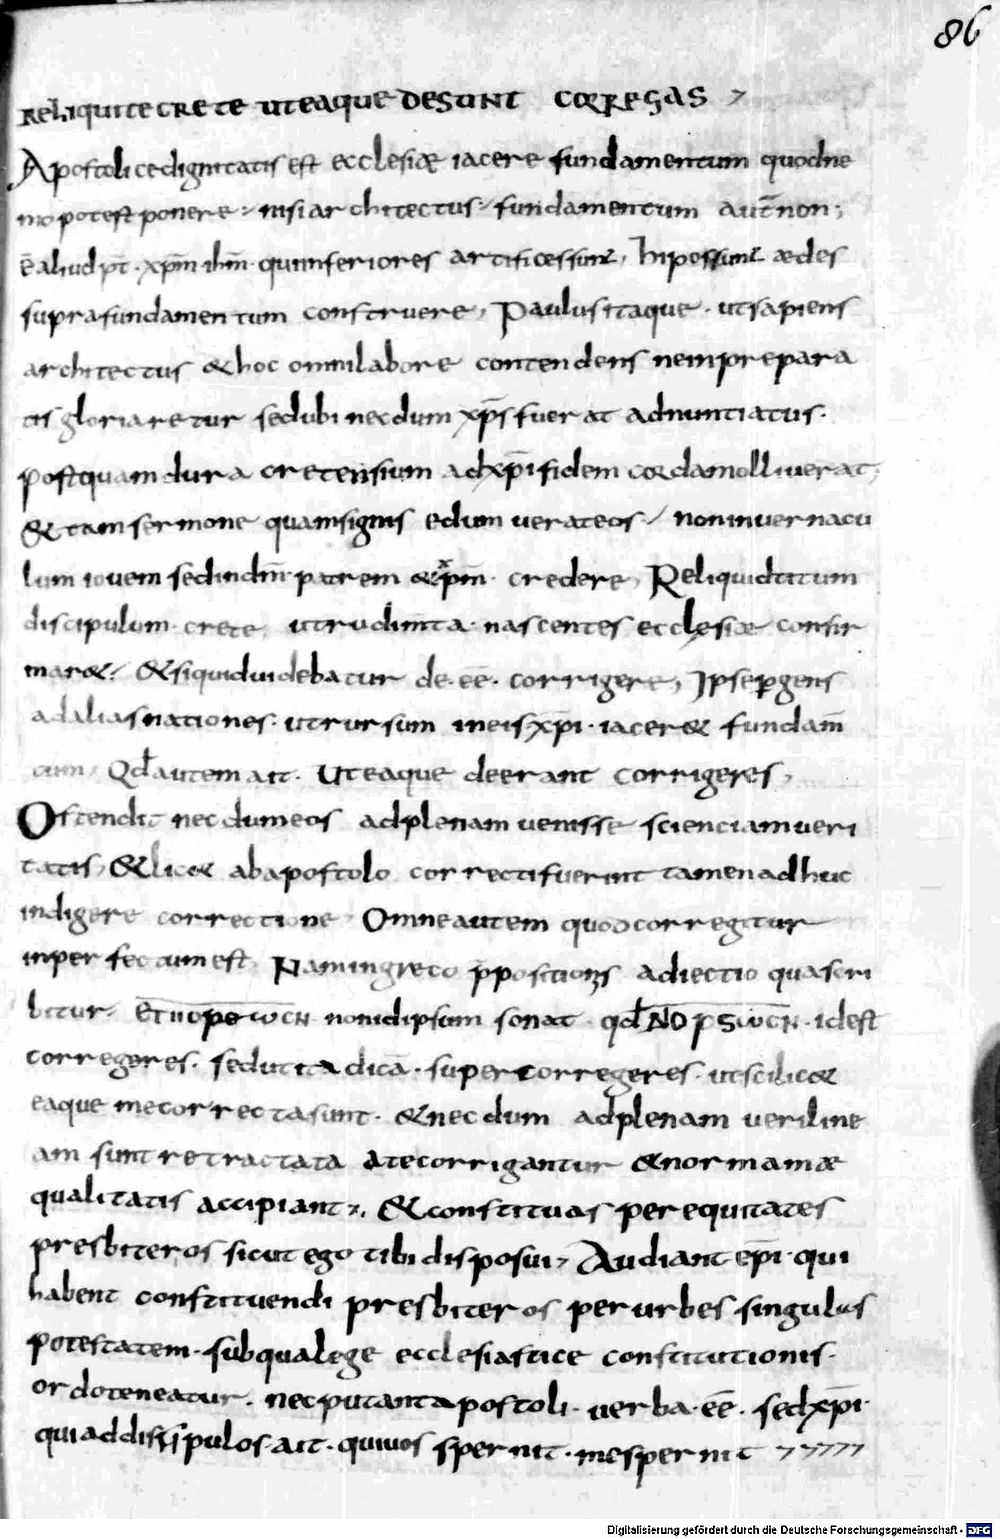 86
RELIQUI TE CRETE UT EA QUE DESUNT CORREGAS
Apostolice dignitatis est ecclesiæ iacere fundamentum quod ne
mo potest ponere nisi architectus fundamentum aut̄ non;
ē aliud p̄t. xp̄m ih̄m qui inferiores artifices sunt, hi possunt ædes
supra fundamentum construere, Paulus itaque. ut sapiens
architectus & hoc omni labore contendens ne in prepara
tis gloriaretur sed ubi necdum xp̄s fuerat adnuntiatus.
postquam dura cretensium ad xp̄i fidem corda molliverat;
& tam sermone quam signis edumuerat eos / non in vernacu
lum iovem sed in dm̄ patrem & xp̄m. credere, Reliquid titum
discipulum crete, ut rudimta nascentes ecclesiæ confir
mar&. & si quid videbatur de.ēē. corrigere, Ipse pgens
ad alias nationes. ut rursum in eis xp̄i. iacer& fundam̄
tum, Qd̄ autem ait. Ut ea que deerant corrigeres,
Ostendit necdum eos ad plenam venisse scienciam veri
tatis, & lic& ab apostolo correcti fuerint tamen adhuc
indigere correctione, Omne autem quod corregitur
inperfectum est, Nam in greco p̄positionis adiectio qua scri
bitur. non id ipsum sonat. qd̄ . idest
corregeres. sed ut ita dicā. super corregeres. ut scilic&
ea que me correcta sunt. & necdum ad plenam veri line
am sunt retractata a te corrigantur & normam æ
qualitatis accipiant, & constituas per equitates
presbiteros sicut ego tibi disposui, Audiant ep̄i qui
habent constituendi presbiteros per urbes singulas
potestatem. sub qua lege ecclesiastice constitutionis.
ordo teneatur. nec putant apostoli. verba. ēē. sed xp̄i.
qui ad discipulos. ait. qui vos spernit. me spernit
Digitalisierung gefördert durch die Deutsche Forschungsgemeinschaft - DFG